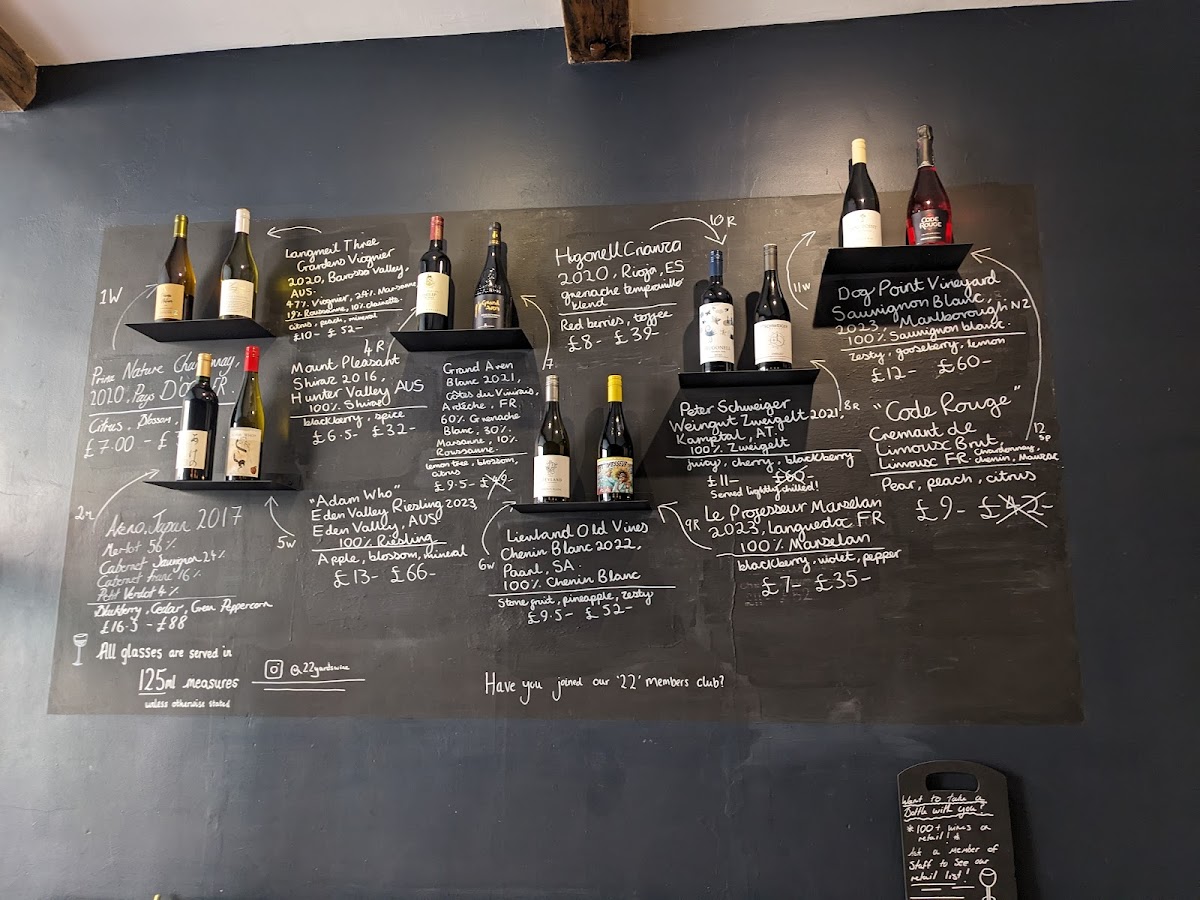 1W
Prinz Nature Chardonnay,
2020, Pays D'OC FR.
Citrus, Blossom,
£7.00 -
Langmeil Three
Gardens Viognier
2020, Barossa Valley,
AUS.
47% Viognier, Marsanne,
Roussanne,
citrus, peach, mineral
£10 - £52-
2r
Areno, Japan 2017
Merlot 56%
Cabernet Sauvignon 24%
Cabernet franc 16%
Petit Verdot 4%
Blackberry, Cedar, Green Peppercorn
£16.5 - £88
4R
Mount Pleasant
Shiraz 2016,
Hunter Valley AUS
100% Shiraz
blackberry, spice
£6.5- £32-
5w
"Adam Who"
Eden Valley Riesling 2023,
Eden Valley, AUS.
100% Riesling
Apple, blossom, mineral
£13- £66-
7
Grand Aven
Blanc 2021,
Côtes du Vivirais,
Ardèche, FR
60% Grenache
Blanc, 30%
Marsanne, 10%
Roussanne.
lemon tree, blossom,
citrus
£9.5- £49-
6w
Lienland Old Vines
Chenin Blanc 2022,
Paarl, SA.
100% Chenin Blanc
Stone fruit, pineapple, zesty
£9.5- £52-
10R
Higonell Crianza
2020, Rioja, ES
grenache tempranillo
blend
Red berries, toffee
£8- £39-
8R
Peter Schweiger
Weingut Zweigelt 2021.
Kamptal, AT
100% Zweigelt
juicy, cherry, blackberry
£11- £60-
Served lightly chilled!
9R
Le Professeur Marselan
2023, Languedoc FR
100% Marselan
blackberry, violet, pepper
£7- £35-
11w
Dog Point Vineyard
Sauvignon Blanc,
2023, Marlborough NZ
100% Sauvignon blanc.
zesty, gooseberry, lemon
£12- £60-
CODE
ROUGE
12
SP
"Code Rouge"
Cremant de
Limoux Brut,
Limoux FR. Chardonnay,
chenin, Mauzac
Pear, peach, citrus
£9- £42-
All glasses are served in
125ml measures
unless otherwise stated
@22yardswine
Have you joined our '22' members club?
Want to take a
Bottle with you?
*100+ wines on
retail!*
Ask a member of
Staff to See our
retail list!